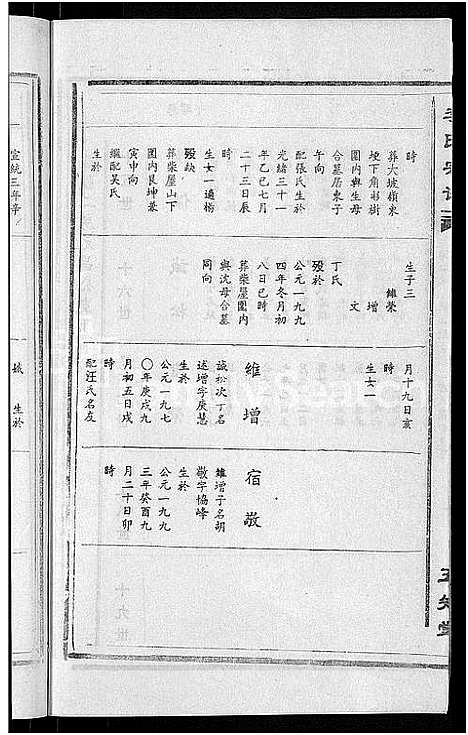 時
葬大坡嶺東
埂下角杉樹
園內與生母
合墓居東子
午向
配張氏生於
光緒三十一
年乙巳七月
二十三日辰
時
生女一適楊
歿缺
葬柴屋山下
園內艮坤兼
寅申向
繼配吳氏
生於
生子三
維榮
增
文
丁氏
歿於
公元一九九
四年冬月初
八日巳時
葬柴屋園內
與沈母合墓
同向
月十九日亥
時
生女一
維增
誠松次丁名
述增字庚慧
生於
公元一九七
〇年庚戌九
月初五日戌
時
配汪氏名友
宿敬
維增子名胡
敬字協峰
生於
公元一九九
三年癸酉九
月二十日卯
時
宣統三年辛
生於
十六世
十九世